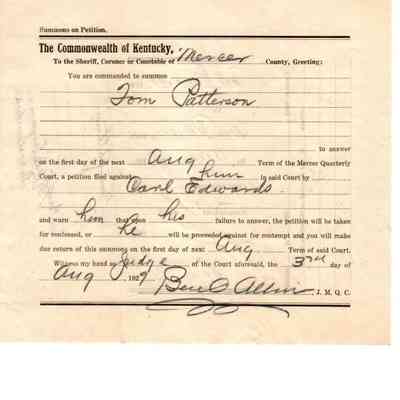 Summons on Petition.
The Commonwealth of Kentucky,
To the Sheriff, Coroner or Constable of Mercer County, Greeting:
You are commanded to summon
Tom Patterson
to answer
on the first day of the next Aug Term of the Mercer Quarterly
Court, a petition filed against him in said Court by
Carl Edwards.
and warn him that upon his failure to answer, the petition will be taken
for confessed, or he will be proceeded against for contempt and you will make
due return of this summons on the first day of next Aug Term of said Court.
Witness my hand as Judge of the Court aforesaid, the 3rd day of
Aug 192
Ben C Allin J. M. Q. C.